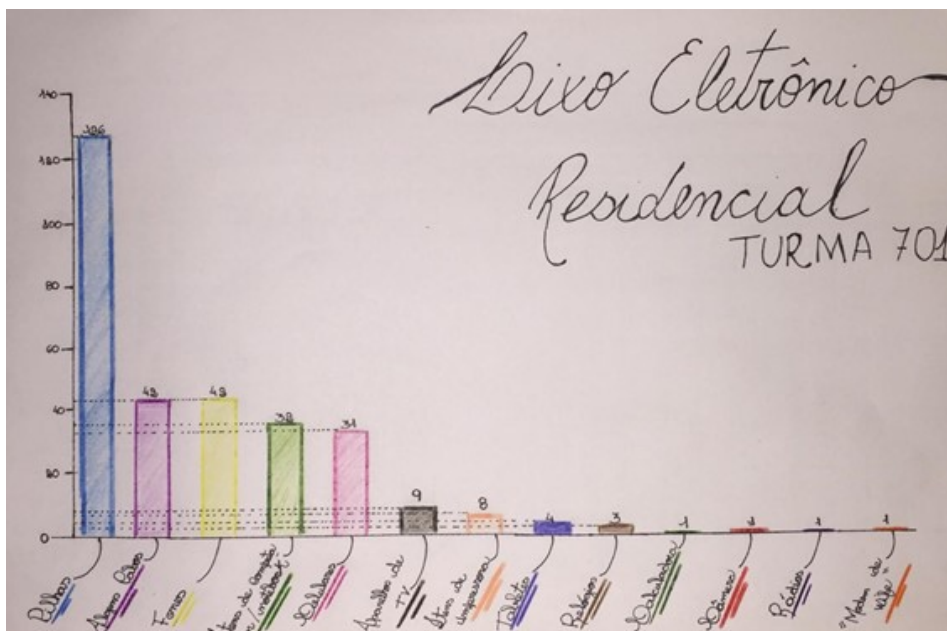 Lixo Eletrônico
Residencial
TURMA 701
140
120
100
80
60
40
20
0
126
42
42
31
9
8
4
3
1
1
1
1
Pilhas
Cabos
Fones
Celulares
Aparelhos de
TV
impressora
Tablets
Relógios
Calculadora
Câmera
Rádios
"Modem de
Wifi"